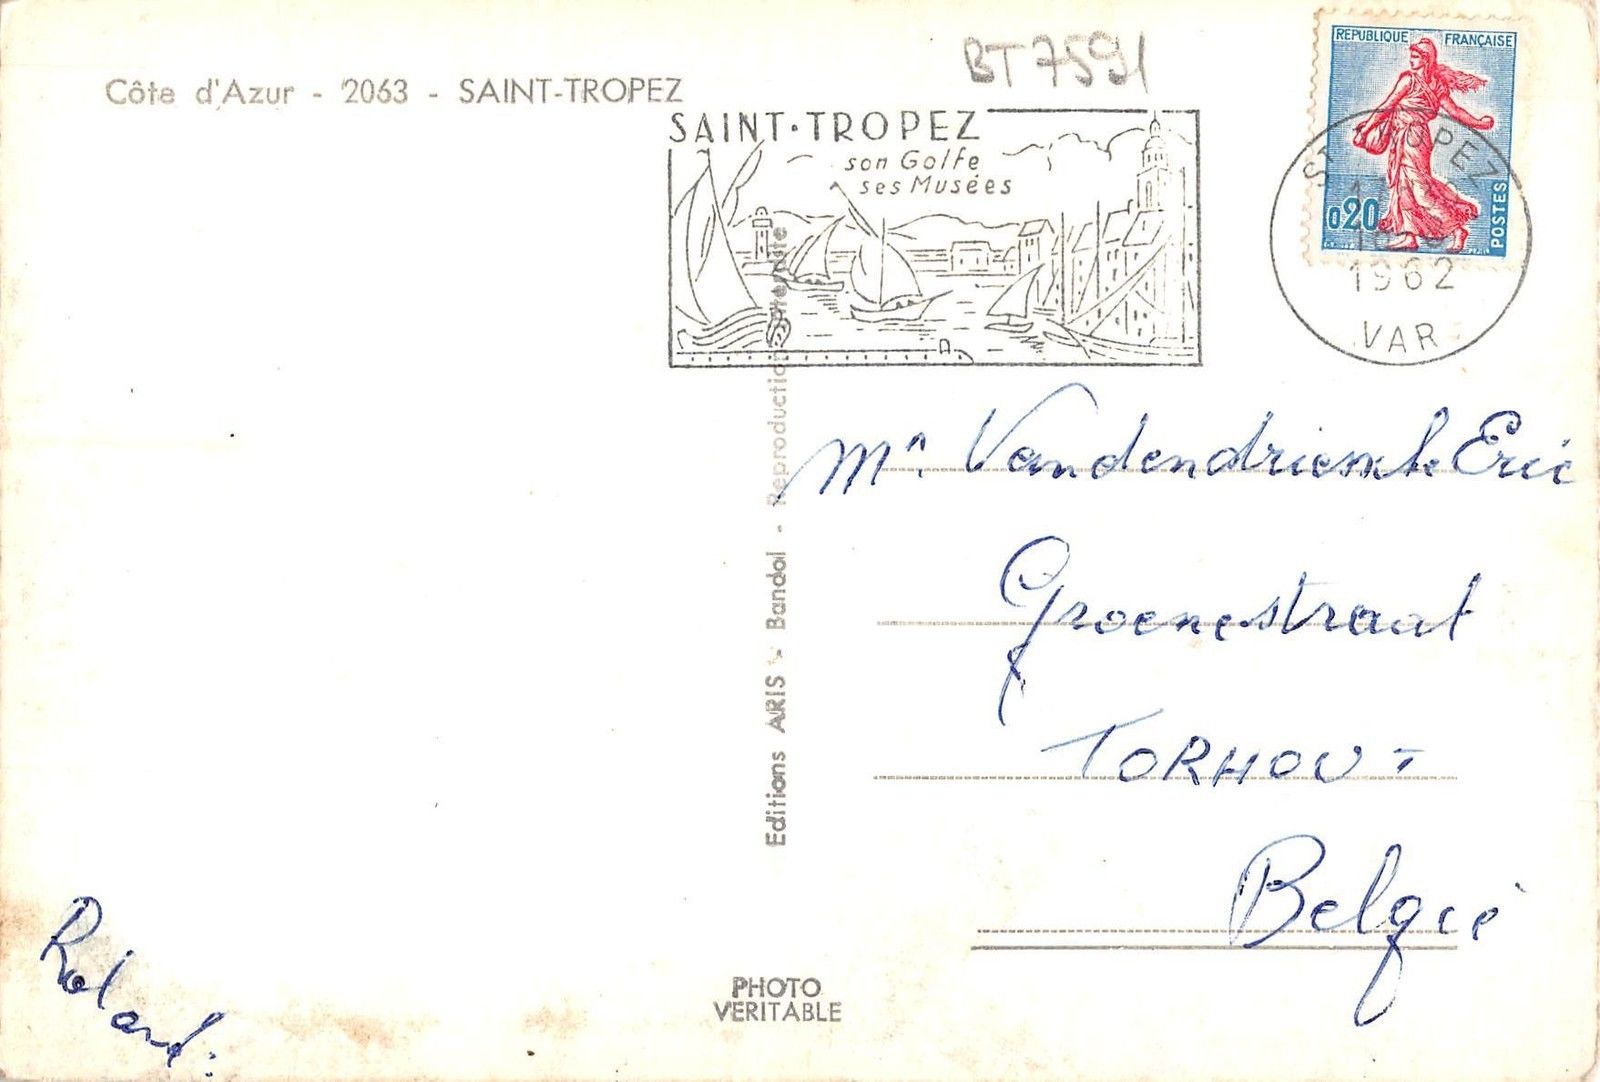 BT7591
Côte d'Azur - 2063 - SAINT-TROPEZ
SAINT·TROPEZ
son Golfe
ses Musées
REPUBLIQUE FRANÇAISE
0,20
POSTES
ST TROPEZ
1962
VAR
Mr Vandendriessche Eric
Groenestraat
TORHOUT
Belgié
Editions ARIS - Bandol - Reproduction interdite
Roland.
PHOTO
VERITABLE